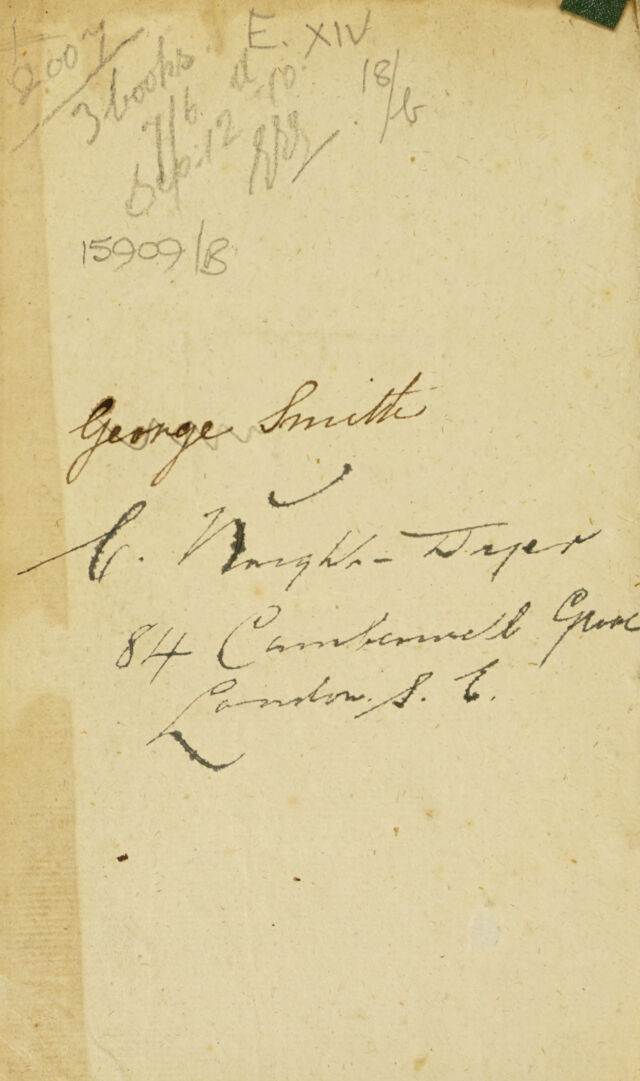 E. XIV
3 books.
7/6
18/6
Sep. 12
15909/B
George Smith
C. Knight-Dyer
84 Camberwell Grove
London. S. E.